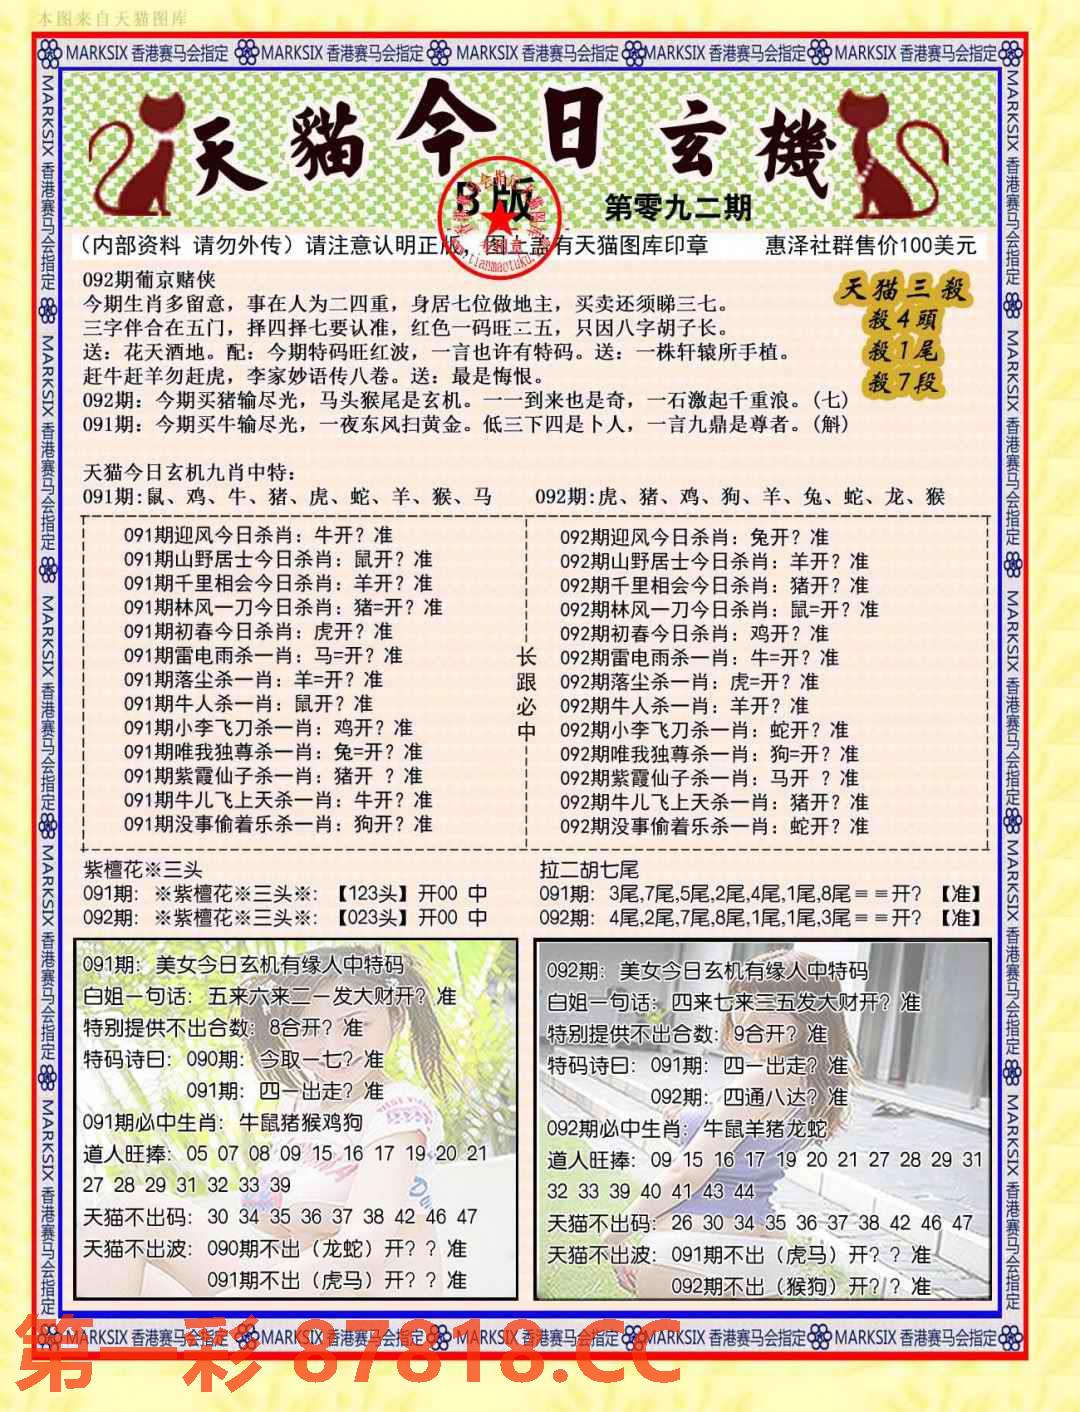 本图来自天猫图库
MARKSIX 香港赛马会指定 MARKSIX 香港赛马会指定 MARKSIX 香港赛马会指定 MARKSIX 香港赛马会指定 MARKSIX 香港赛马会指定
天貓今日玄機
B版
第零九二期
(内部资料 请勿外传)请注意认明正版，图上盖有天猫图库印章 惠泽社群售价100美元
092期葡京赌侠
今期生肖多留意，事在人为二四重，身居七位做地主，买卖还须睇三七。
三字伴合在五门，择四择七要认准，红色一码旺二五，只因八字胡子长。
送：花天酒地。配：今期特码旺红波，一言也许有特码。送：一株轩辕所手植。
赶牛赶羊勿赶虎，李家妙语传八卷。送：最是悔恨。
092期：今期买猪输尽光，马头猴尾是玄机。一一到来也是奇，一石激起千重浪。(七)
091期：今期买牛输尽光，一夜东风扫黄金。低三下四是卜人，一言九鼎是尊者。(斛)
天猫三殺
殺4頭
殺1尾
殺7段
天猫今日玄机九肖中特：
091期:鼠、鸡、牛、猪、虎、蛇、羊、猴、马 092期:虎、猪、鸡、狗、羊、兔、蛇、龙、猴
091期迎风今日杀肖：牛开？准
091期山野居士今日杀肖：鼠开？准
091期千里相会今日杀肖：羊开？准
091期林风一刀今日杀肖：猪=开？准
091期初春今日杀肖：虎开？准
091期雷电雨杀一肖：马=开？准
091期落尘杀一肖：羊=开？准
091期牛人杀一肖：鼠开？准
091期小李飞刀杀一肖：鸡开？准
091期唯我独尊杀一肖：兔=开？准
091期紫霞仙子杀一肖：猪开 ？准
091期牛儿飞上天杀一肖：牛开？准
091期没事偷着乐杀一肖：狗开？准
长跟必中
092期迎风今日杀肖：兔开？准
092期山野居士今日杀肖：羊开？准
092期千里相会今日杀肖：猪开？准
092期林风一刀今日杀肖：鼠=开？准
092期初春今日杀肖：鸡开？准
092期雷电雨杀一肖：牛=开？准
092期落尘杀一肖：虎=开？准
092期牛人杀一肖：羊开？准
092期小李飞刀杀一肖：蛇开？准
092期唯我独尊杀一肖：狗=开？准
092期紫霞仙子杀一肖：马开 ？准
092期牛儿飞上天杀一肖：猪开？准
092期没事偷着乐杀一肖：蛇开？准
紫檀花※三头
091期：※紫檀花※三头※：【123头】开00 中
092期：※紫檀花※三头※：【023头】开00 中
拉二胡七尾
091期：3尾,7尾,5尾,2尾,4尾,1尾,8尾＝＝开？【准】
092期：4尾,2尾,7尾,8尾,1尾,1尾,3尾＝＝开？【准】
091期：美女今日玄机有缘人中特码
白姐一句话：五来六来二一发大财开？准
特别提供不出合数：8合开？准
特码诗曰：090期：今取一七？准
091期：四一出走？准
091期必中生肖：牛鼠猪猴鸡狗
道人旺捧：05 07 08 09 15 16 17 19 20 21
27 28 29 31 32 33 39
天猫不出码：30 34 35 36 37 38 42 46 47
天猫不出波：090期不出（龙蛇）开？？准
091期不出（虎马）开？？准
092期：美女今日玄机有缘人中特码
白姐一句话：四来七来三五发大财开？准
特别提供不出合数：9合开？准
特码诗曰：091期：四一出走？准
092期：四通八达？准
092期必中生肖：牛鼠羊猪龙蛇
道人旺捧：09 15 16 17 19 20 21 27 28 29 31
32 33 39 40 41 43 44
天猫不出码：26 30 34 35 36 37 38 42 46 47
天猫不出波：091期不出（虎马）开？？准
092期不出（猴狗）开？？准
MARKSIX 香港赛马会指定 MARKSIX 香港赛马会指定 MARKSIX 香港赛马会指定 MARKSIX 香港赛马会指定 MARKSIX 香港赛马会指定
第一彩 87818.CC